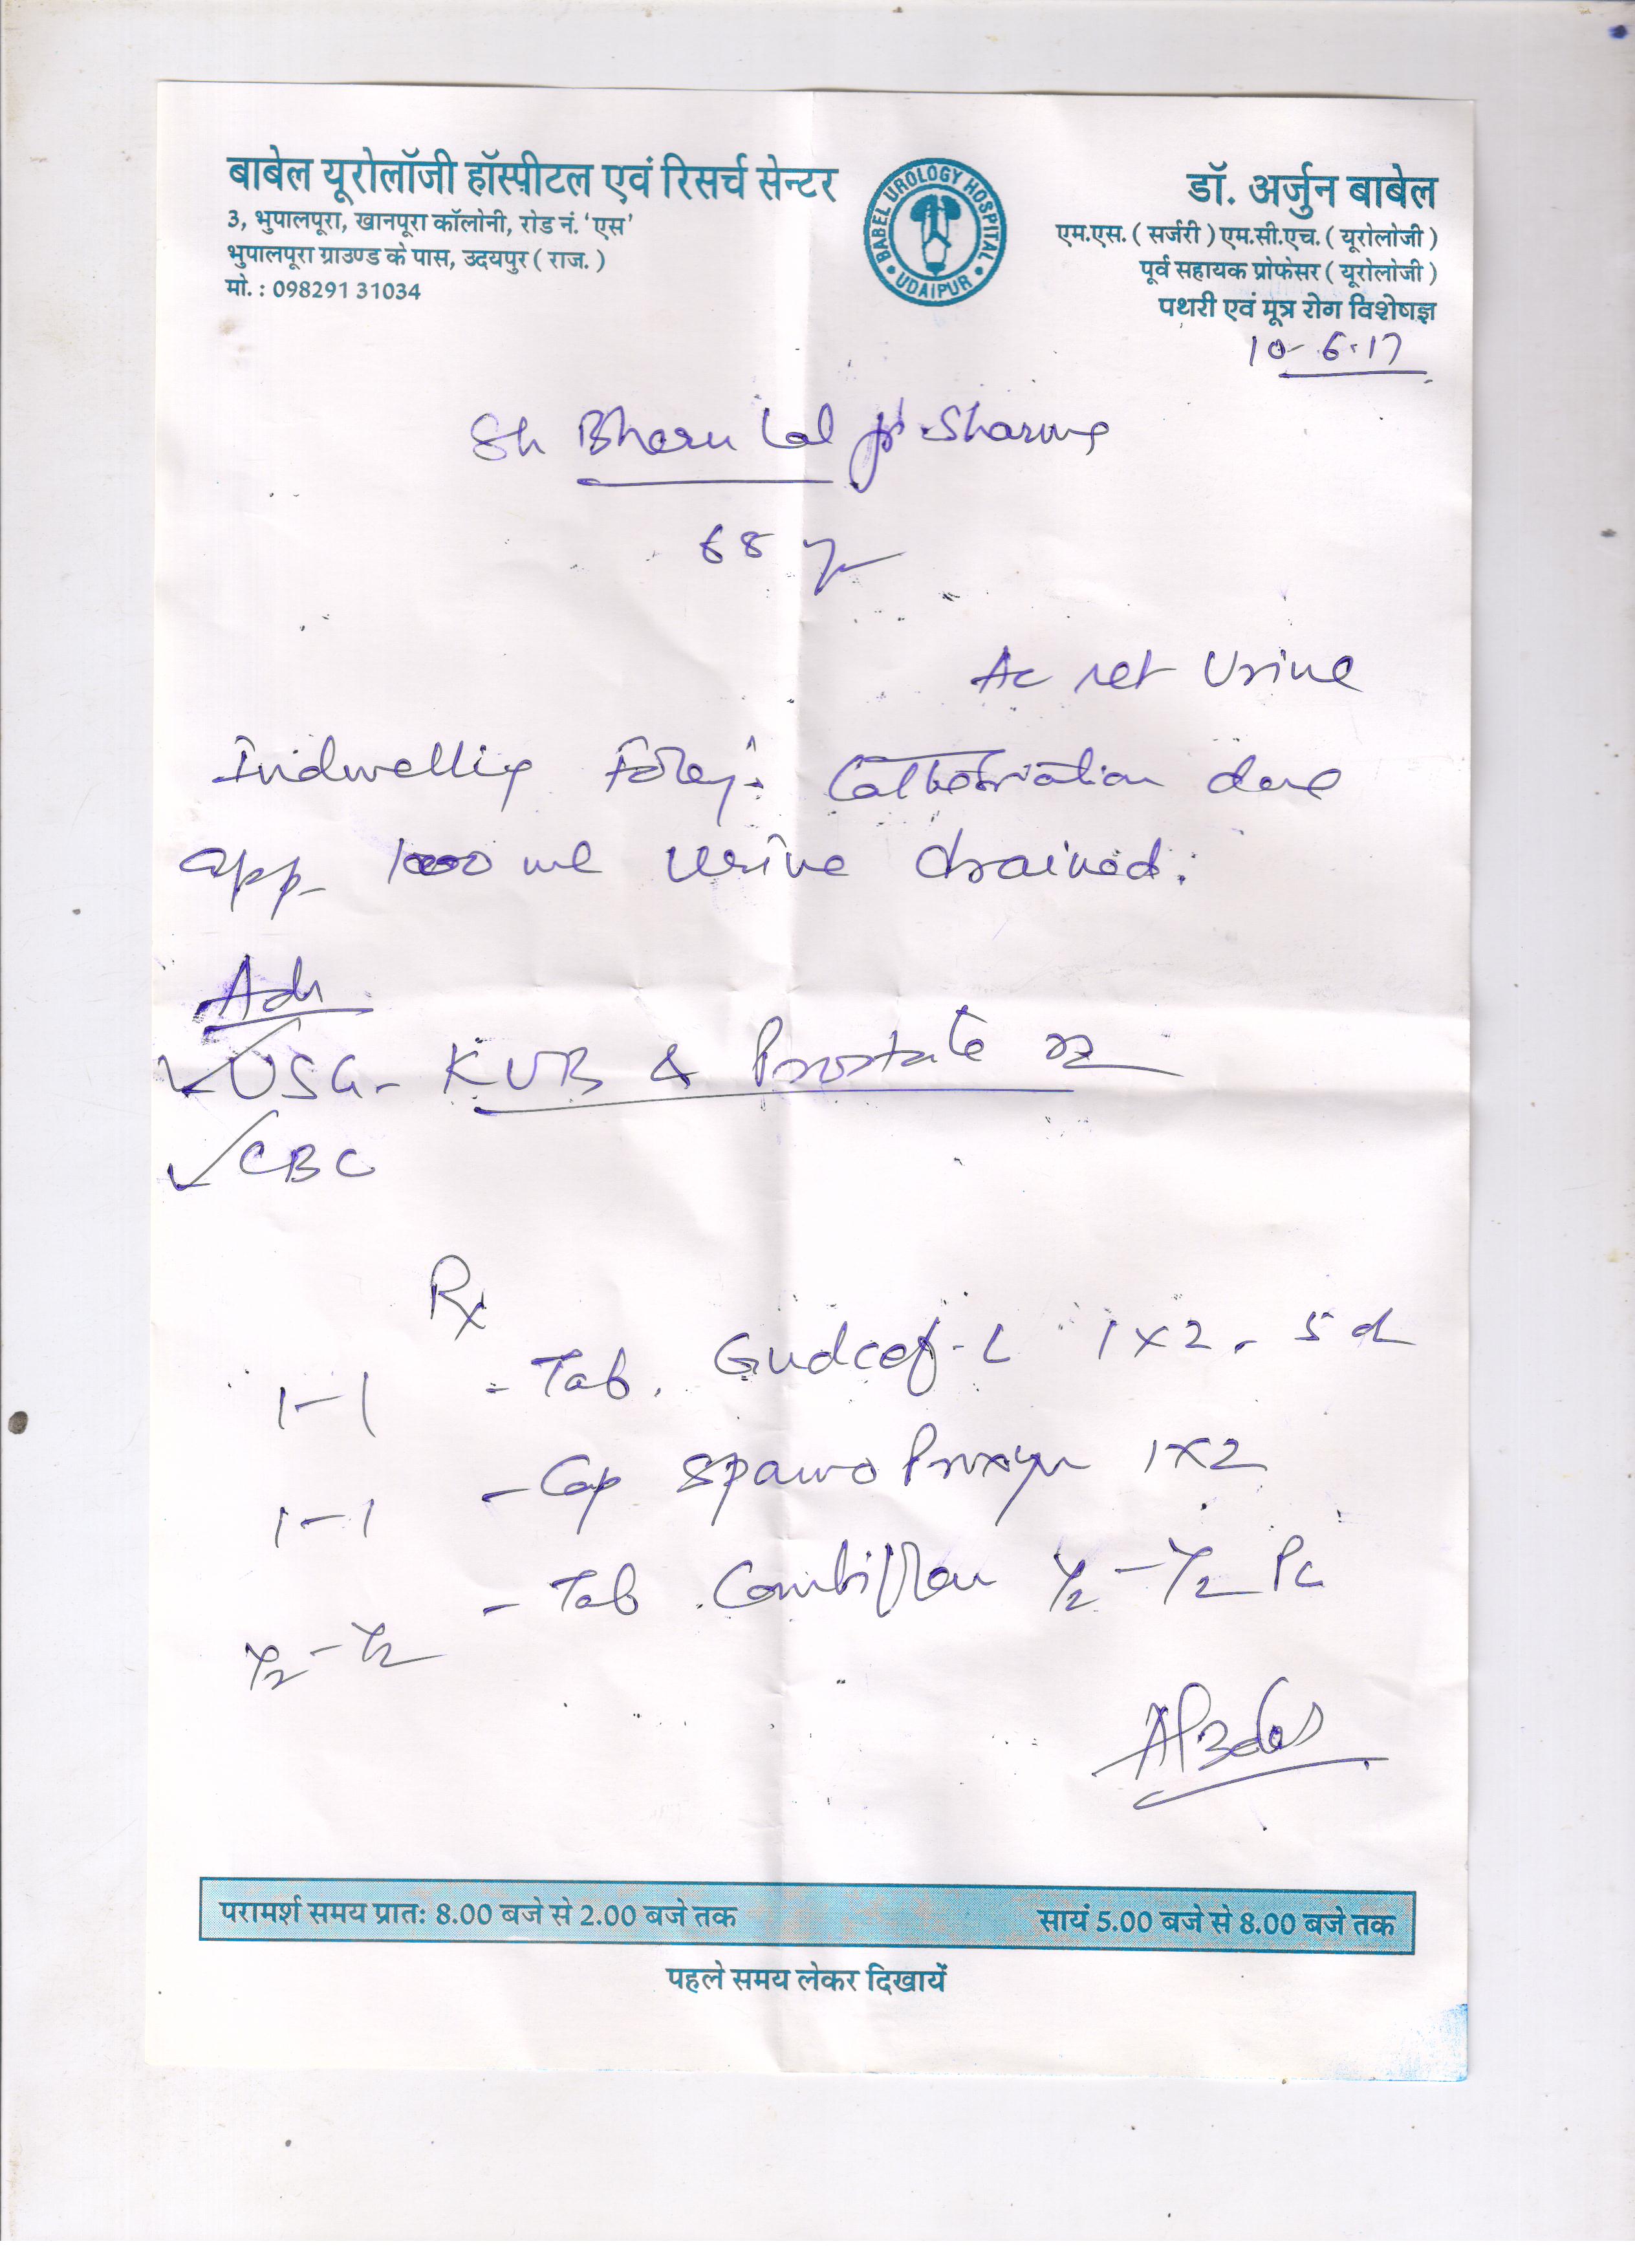 बाबेल यूरोलॉजी हॉस्पीटल एवं रिसर्च सेन्टर
3, भुपालपूरा, खानपूरा कॉलोनी, रोड नं. 'एस'
भुपालपूरा ग्राउण्ड के पास, उदयपुर ( राज. )
मो. : 098291 31034
BABEL UROLOGY HOSPITAL
UDAIPUR
डॉ. अर्जुन बाबेल
एम.एस. ( सर्जरी ) एम.सी.एच. ( यूरोलोजी )
पूर्व सहायक प्रोफेसर ( यूरोलोजी )
पथरी एवं मूत्र रोग विशेषज्ञ
10-6-17
Sh Bheru Lal ji Sharma
68 yr
Ac ret Urine
Indwelling Foley's Catheterization done
app 1000 ml Urine drained.
Adv
USG - KUB & Prostate
CBC
Rx
1-1 - Tab. Gudcef-L 1x2 - 5 d
1-1 - Cap 1x2
½-½ - Tab Combiflam ½-½ Pc
परामर्श समय प्रातः 8.00 बजे से 2.00 बजे तक सायं 5.00 बजे से 8.00 बजे तक
पहले समय लेकर दिखायें